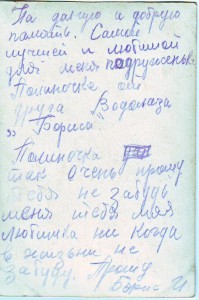 На долгую и добрую
память. Самой
лучшей и любимой
для меня подруженьке
Полиночка от
друга Водолаза
„Бориса".
Полиночка
так очень прошу
тебя не забудь
меня тебя моя
любимка ни когда
в жизни не
забуду. Прошу
Борис И